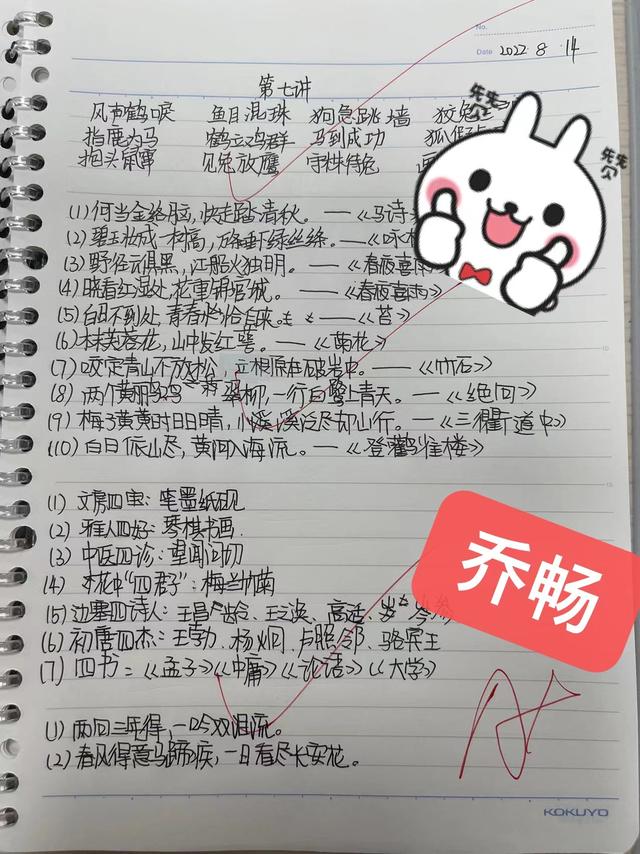 No.
Date 2022. 8. 14
第七讲
风声鹤唳 鱼目混珠 狗急跳墙 狡兔
指鹿为马 鹤立鸡群 马到成功 狐假
抱头鼠窜 见兔放鹰 守株待兔
先先
先先
(1) 何当金络脑，快走踏清秋。——《马诗
(2) 碧玉妆成一树高，万条垂下绿丝绦。——《咏
(3) 野径云俱黑，江船火独明。——《春夜喜雨
(4) 晓看红湿处，花重锦官城。——《春夜喜雨》
(5) 白日不到处，青春恰恰自来。——《苔》
(6) 木末芙蓉花，山中发红萼。——《菊花》
(7) 咬定青山不放松，立根原在破岩中。——《竹石》
(8) 两个黄鹂鸣翠柳，一行白鹭上青天。——《绝句》
(9) 梅子黄黄时日日晴，小溪溪泛尽却山行。——《三衢道中》
(10) 白日依山尽，黄河入海流。——《登鹳雀楼》
(1) 文房四宝：笔墨纸砚
(2) 雅人四好：琴棋书画
(3) 中医四诊：望闻问切
(4) 花中“四君子”：梅兰竹菊
(5) 边塞四诗人：王昌龄、王之涣、高适、岑参
(6) 初唐四杰：王勃、杨炯、卢照邻、骆宾王
(7) 四书：《孟子》《中庸》《论语》《大学》
乔畅
(1) 两句三年得，一吟双泪流。
(2) 春风得意马蹄疾，一日看尽长安花。
A+
KOKUYO